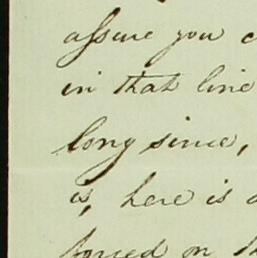 assure you
in that line
long since,
is, here is
forced on